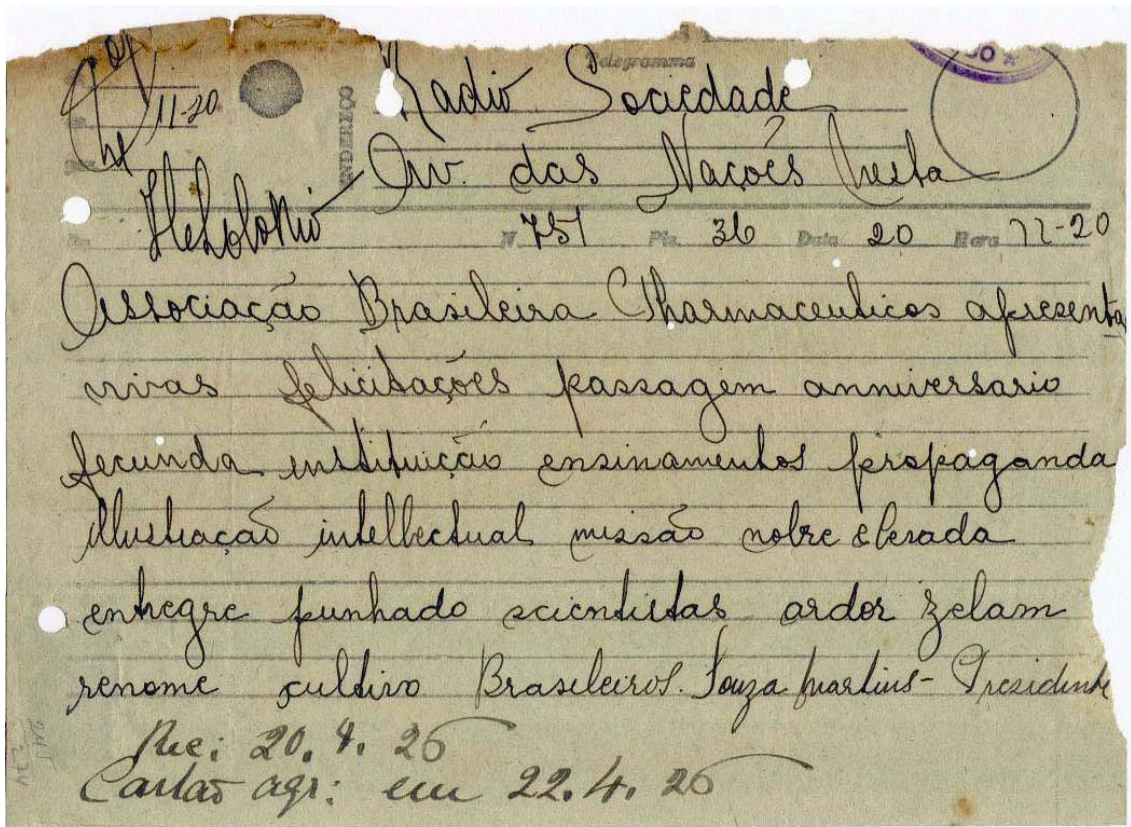 Telegramma
Radio Sociedade
11-20
ENDEREÇO
Av. das Nações Nesta
N. 751 Pls. 36 Data 20 Hora 11-20
Associação Brasileira Pharmaceuticos apresenta
vivas felicitações passagem anniversario
fecunda instituição ensinamentos propaganda
illustração intellectual missão nobre elevada
entregre punhado scientistas ardor zelam
renome cultivo Brasileiros. Souza Martins - Presidente
Rec: 20.4.26
Cartão agr: em 22.4.26